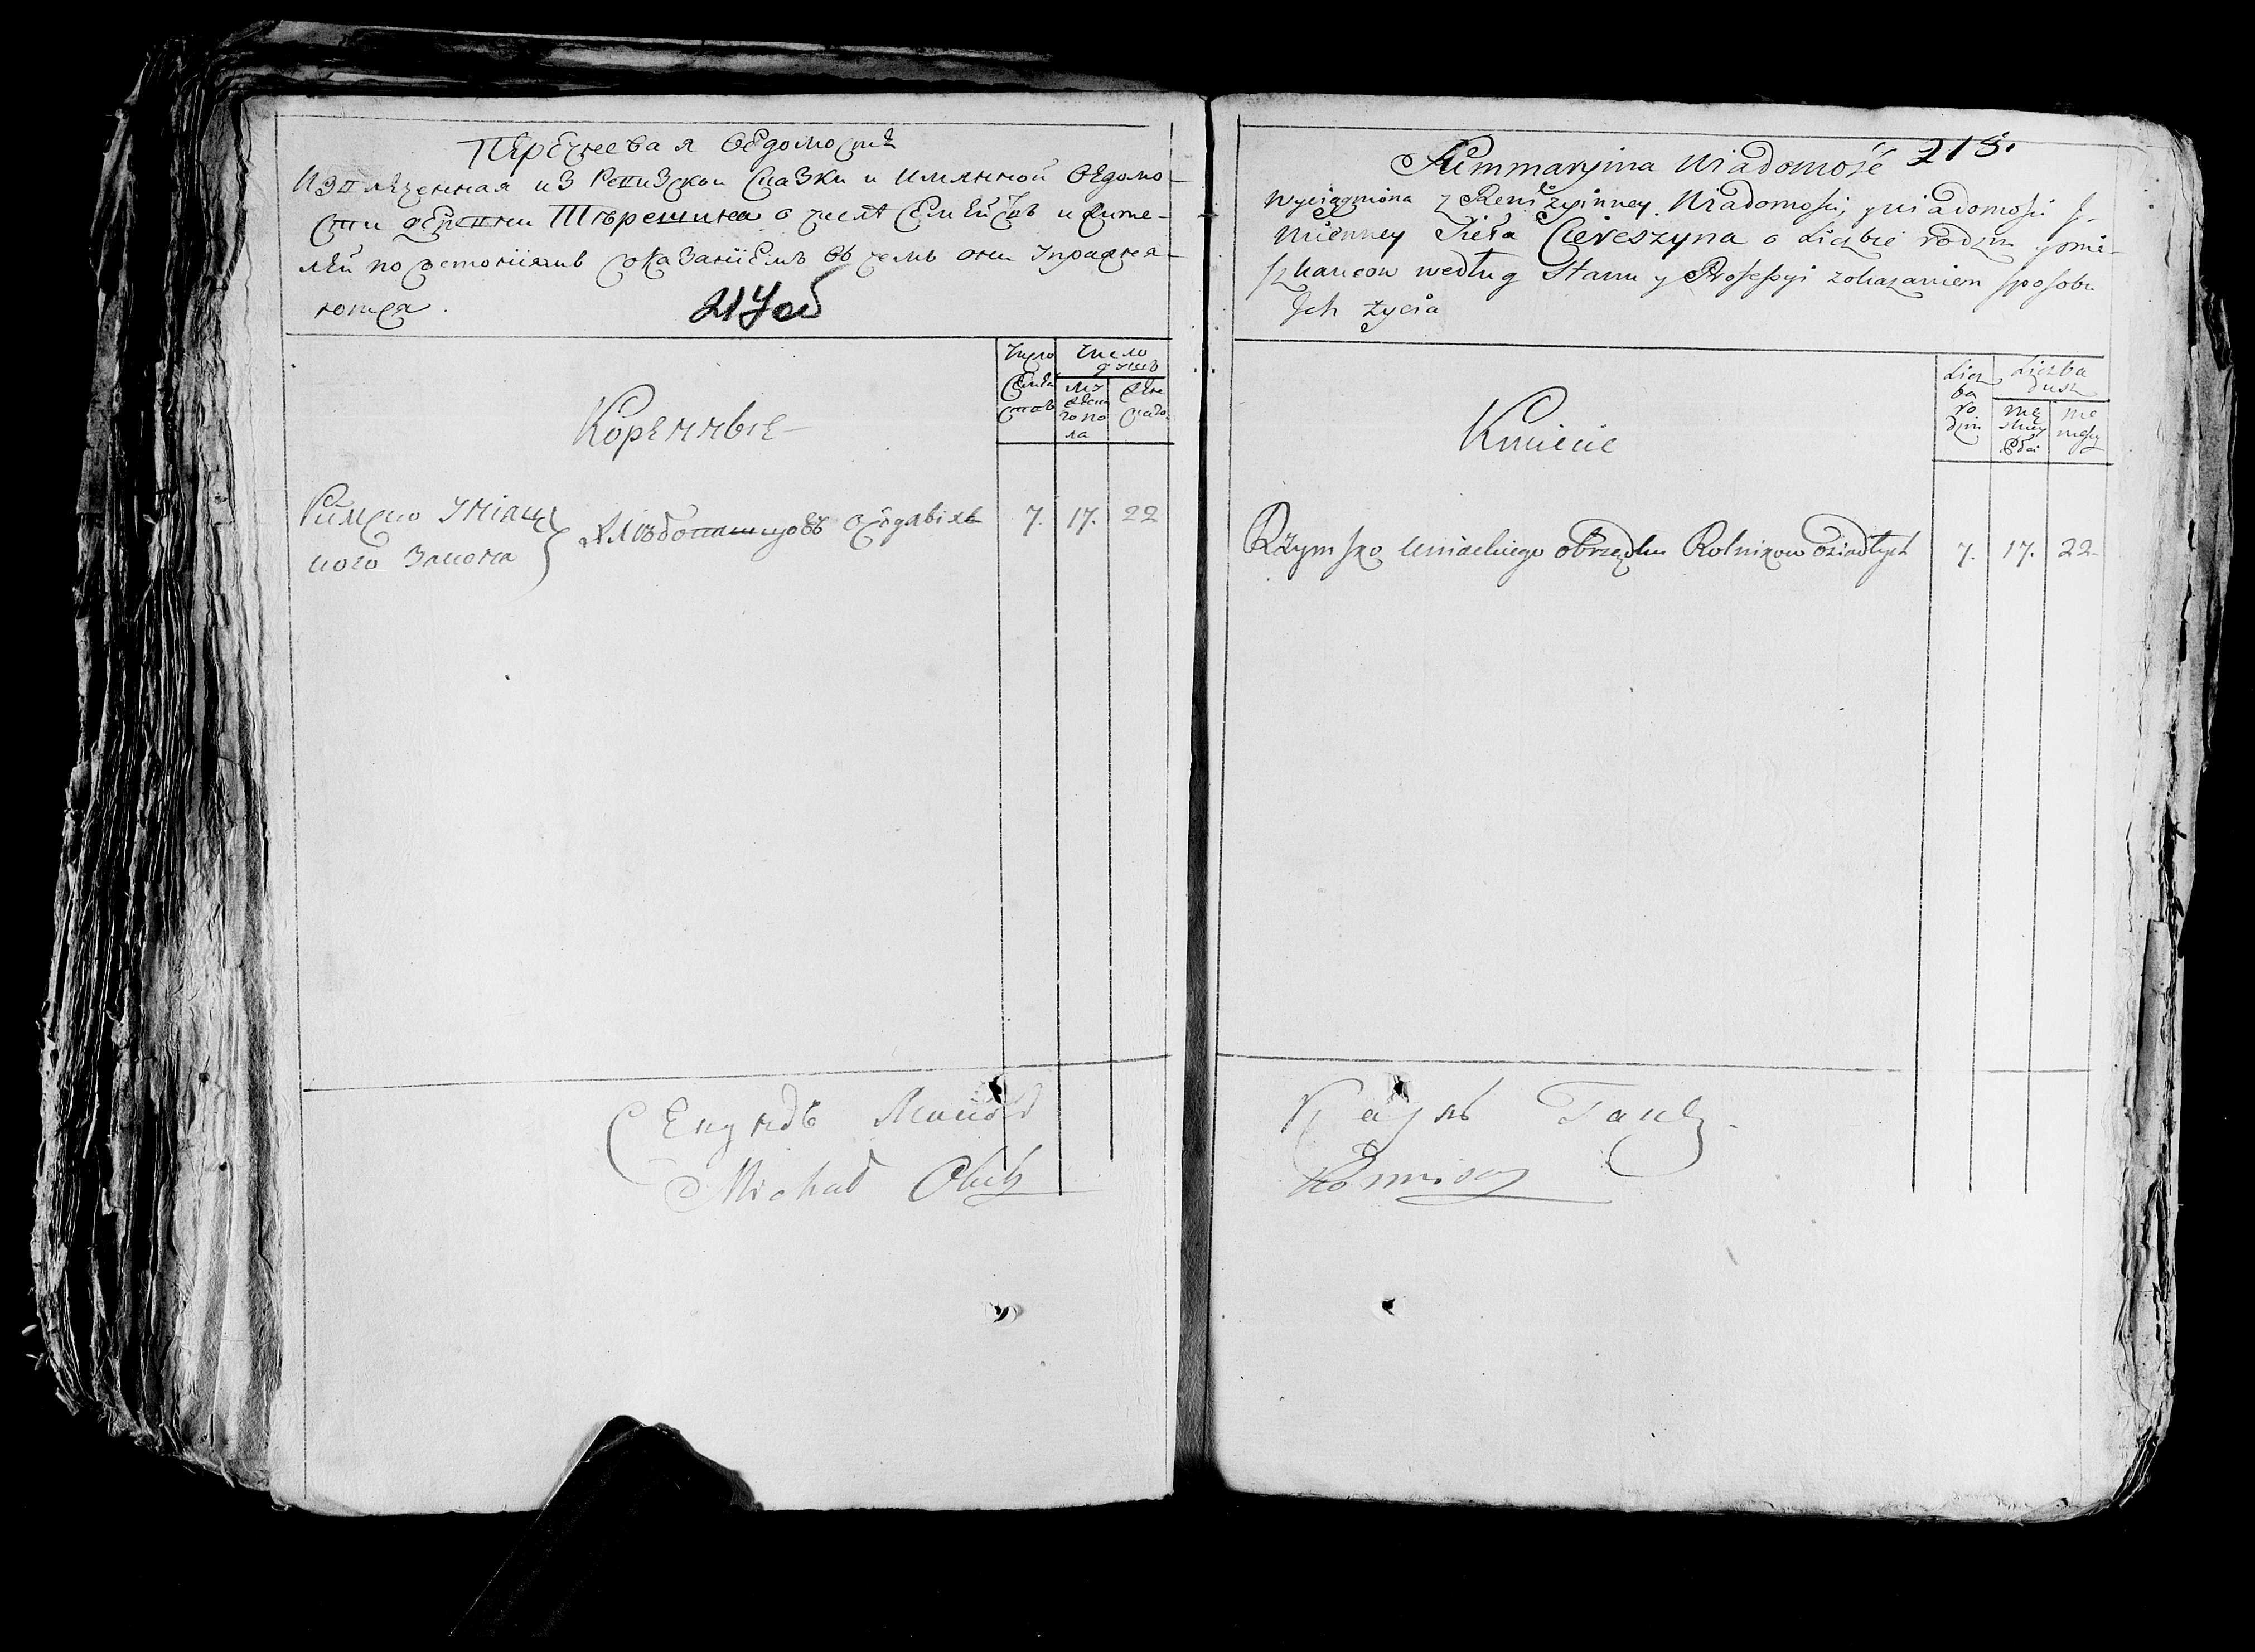 Перечневая ведомость
Извлеченная из Ревизской сказки и имянной ведомо-
сти деревни Терешина о числе семейств и жите-
лей по состоянiямъ съ показанiемъ въ чемъ они упражня-
ются.
Число
Семей
ствъ
Число
душъ
му
жеска
го по
ла
жен
скаго
Коренные
Римско Унiац
кого Закона } Хлебопашцовъ оседлыхъ 7. 17. 22
Michał
215.
Summaryina Wiadomość
Wyciągniona z Rewizyinney Wiadomości, y wiadomości J-
mienney Sieła Ciereszyna o Liczbie rodzin y mie-
szkancow według Stanu y Professyi z okazaniem sposobu
Jch życia
Licz
ba
ro
dzin
Liczba
dusz
mę
skiey
płci
Kmiecie
Rzymsko Uniackiego obrządku Rolnikow osiadłych 7. 17. 22